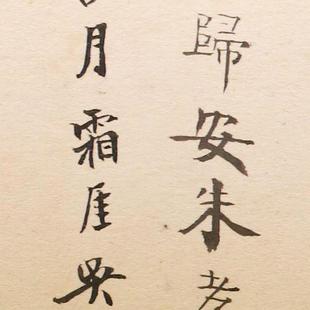 歸安朱
月霜厓吳